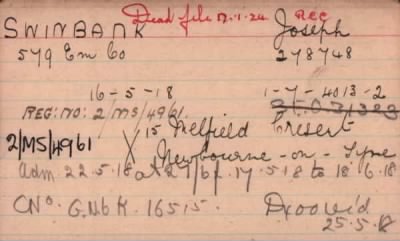 Dead file 17.1.24. REC
SWINBANK Joseph
579 Em Co 278748
16-5-18 1-7-4013-2
REG: NO: 2/MS/4961.
2/MS/4961 15 Melfield Cresert
Newbourne-on-Tyne
Adm 22.5.18 at 27/6/- 17.5.18 to 18.6.18
CNo. G.Nb K. 16515. 25.5.18